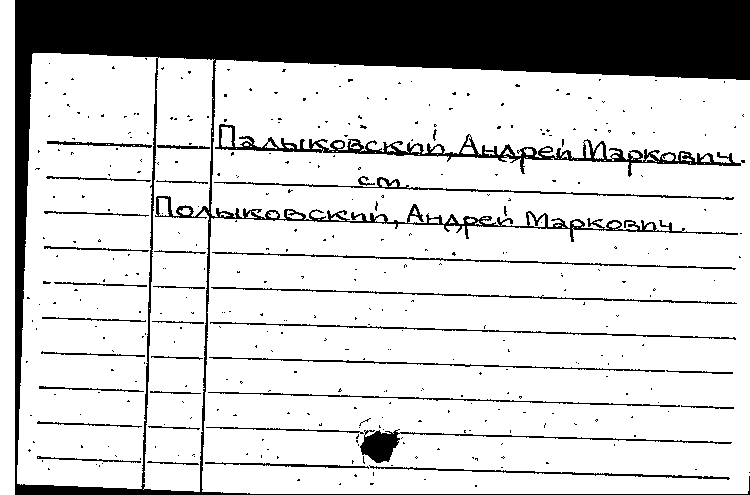 Палыковский, Андрей Маркович.
см.
Полыковский, Андрей Маркович.